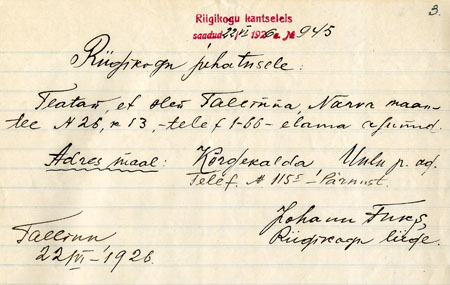 3.
Riigikogu kantseleis
saadud 22/VI 1926 a. № 945
Riigikogu juhatusele:
Teatan, et olen Tallinna, Narva maan-
tee № 26, k 13, - telef 1-66 - elama asunud.
Adres maal: Kõrgekalda Uulu p. ag.
Telef. № 115 Pärnust.
Johann Fuks,
Riigikogu liige.
Tallinn
22/VI - 1926.